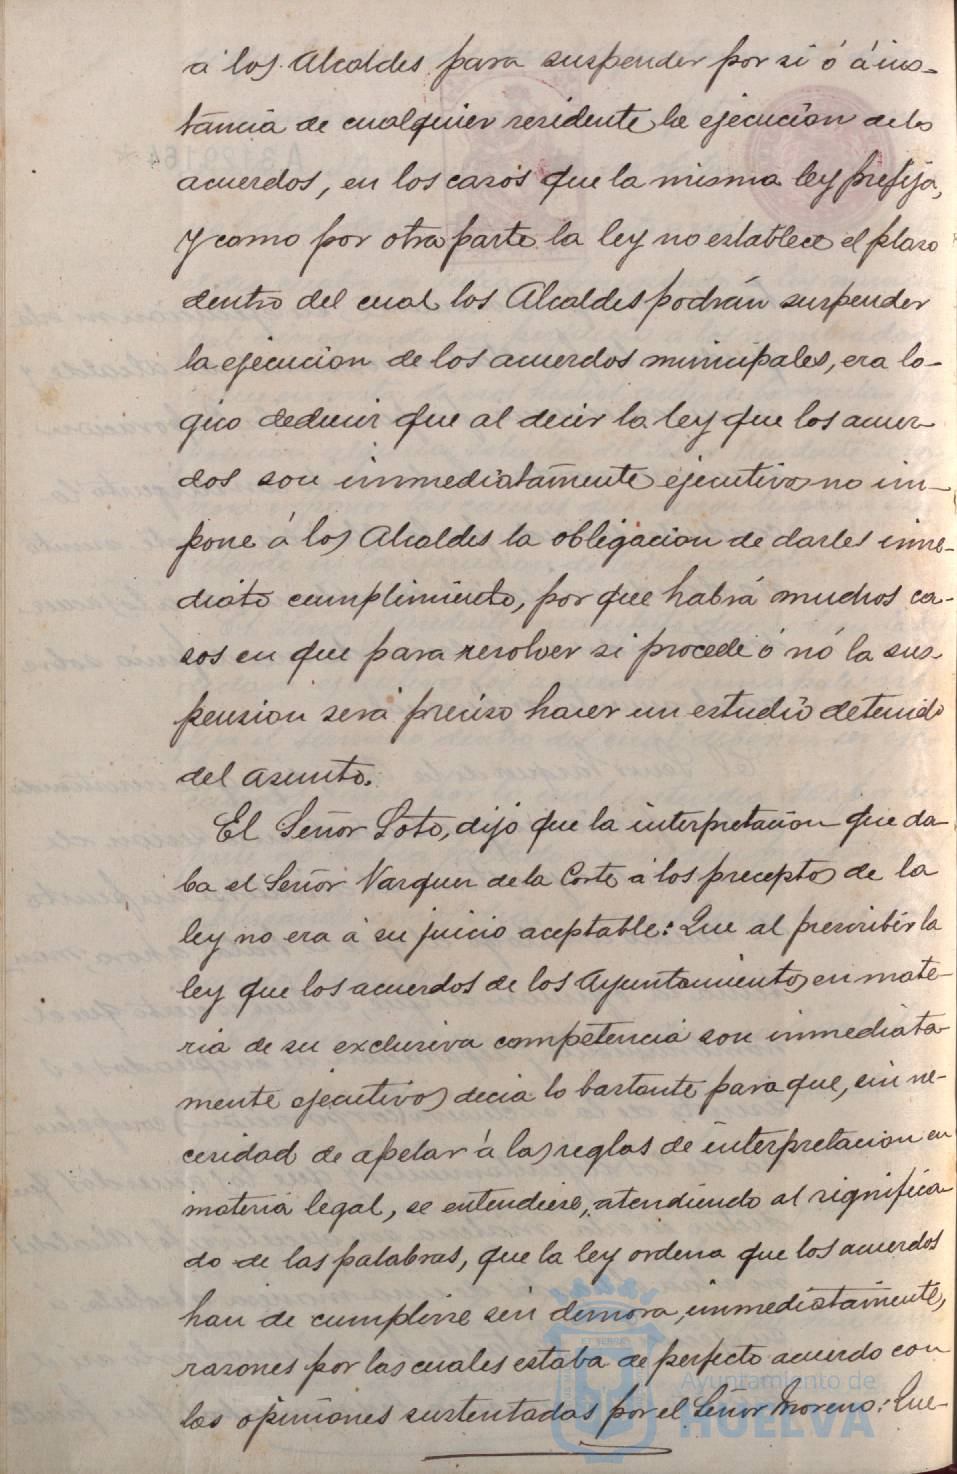 á los Alcaldes para suspender por si ó á ins-
tancia de cualquier residente la ejecucion de los
acuerdos, en los casos que la misma ley prefija,
y como por otra parte la ley no establece el plazo
dentro del cual los Alcaldes podrán suspender
la ejecucion de los acuerdos municipales, era lo-
gico deducir que al decir la ley que los acuer-
dos son inmediatamente ejecutivos no im-
pone á los Alcaldes la obligacion de darles inme-
diato cumplimiento, por que habrá muchos ca-
sos en que para resolver si procede ó nó la sus-
pension será preciso hacer un estudio detenido
del asunto.
El Señor Soto, dijo que la interpretacion que da-
ba el Señor Vazquez de la Corte á los preceptos de la
ley no era á su juicio aceptable: Que al prescribir la
ley que los acuerdos de los Ayuntamientos en mate-
ria de su exclusiva competencia son inmediata-
mente ejecutivos decia lo bastante para que, sin ne-
cesidad de apelar á las reglas de interpretacion en
materia legal, se entendiese, atendiendo al significa-
do de las palabras, que la ley ordena que los acuerdos
han de cumplirse sin demora, inmediatamente,
razones por las cuales estaba de perfecto acuerdo con
las opiniones sustentadas por el Señor Moreno: Que
Ayuntamiento de
HUELVA
A3129164